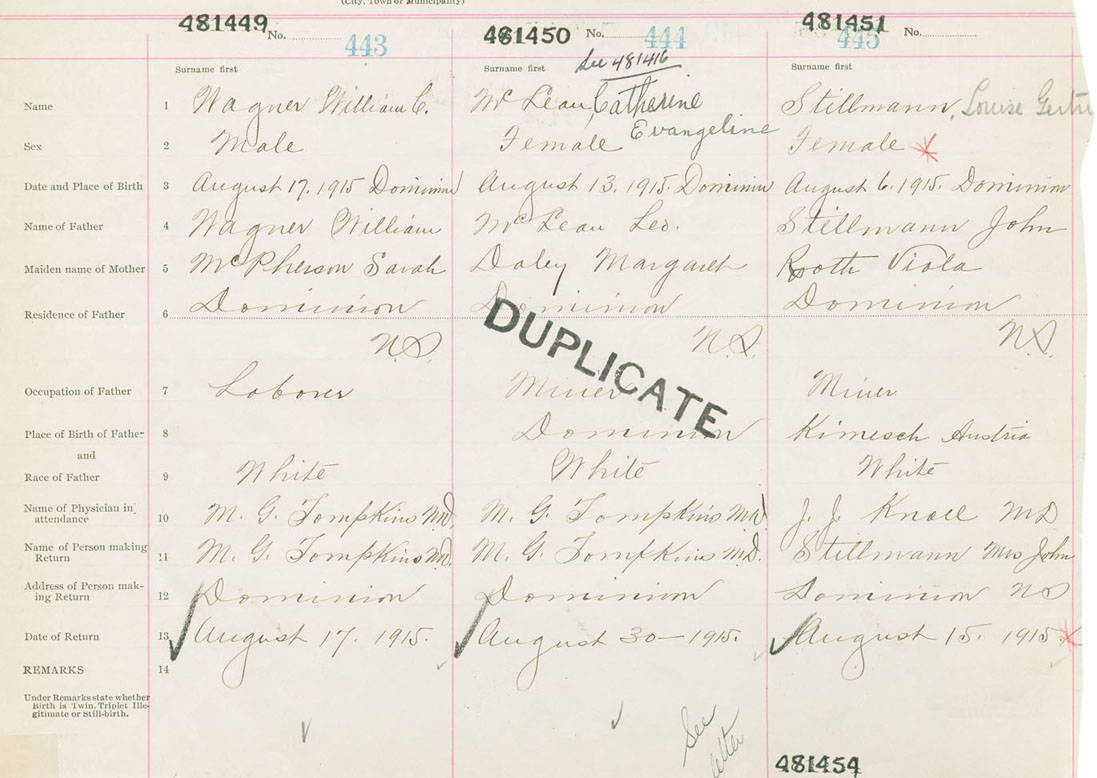 (City, Town or Municipality)
481449 No. 443
481450 No. 444
481451 No. 445
Surname first Surname first See 481416 Surname first
Name 1 Wagner William C. McLean, Catherine Evangeline Stillmann, Louise
Sex 2 Male Female Female
Date and Place of Birth 3 August 17. 1915 Dominion August 13. 1915. Dominion August 6. 1915. Dominion
Name of Father 4 Wagner William McLean Leo. Stillmann John
Maiden name of Mother 5 McPherson Sarah Daley Margaret Rooth Viola
Residence of Father 6 Dominion Dominion Dominion
N.S. N.S. N.S.
DUPLICATE
Occupation of Father 7 Laborer Miner Miner
Place of Birth of Father 8 Dominion Kimesch Austria
and
Race of Father 9 White White White
Name of Physician in attendance 10 M. G. Tompkins MD. M. G. Tompkins MD J. J. Knoll MD
Name of Person making Return 11 M. G. Tompkins MD. M. G. Tompkins M.D. Stillmann Mrs John
Address of Person making Return 12 Dominion Dominion Dominion NS
Date of Return 13 August 17. 1915. August 30 - 1915. August 15. 1915
REMARKS 14
Under Remarks state whether
Birth is Twin, Triplet Ille-
gitimate or Still-birth.
See
letter
481454